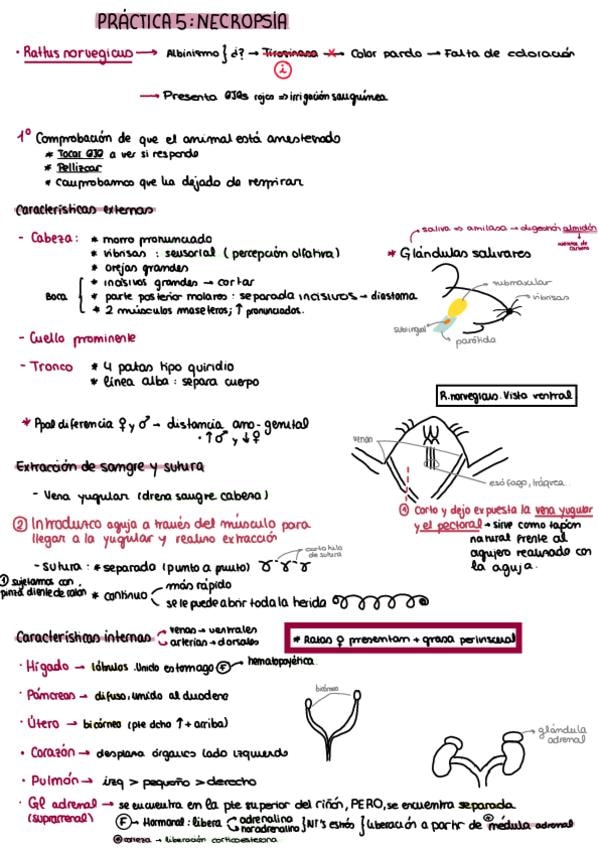 PRÁCTICA 5: NECROPSIA
· Rattus norvegicus → Albinismo } ¿? → Tirosinasa → Color pardo → Falta de coloración
i
→ Presenta OJOS rojos => irrigación sanguínea
1º Comprobación de que el animal está anestesiado
* Tocar OJO a ver si responde
* Pellizcar
* Comprobamos que ha dejado de respirar
Características externas
- Cabeza: * morro pronunciado
* vibrisas : sensorial (percepción olfativa)
* orejas grandes
Boca
* incisivos grandes → cortar
* parte posterior molares : separada incisivos → diastema
* 2 músculos maseteros; ↑ pronunciados.
saliva => amilasa → digestión almidón
* Glándulas salivares
submaxilar
vibrisas
sublingual
parótida
- Cuello prominente
- Tronco * 4 patas tipo quiridio
* línea alba : separa cuerpo
* Ppal diferencia ♀ y ♂ → distancia ano-genital
· ↑♂ y ↓♀
R.norvegicus. Vista ventral
venas
esófago, tráquea
Extracción de sangre y sutura
- Vena yugular (drena sangre cabeza)
① Corto y dejo expuesta la vena yugular
y el pectoral → sirve como tapón
natural frente al
agujero realizado con
la aguja.
② Introduzco aguja a través del músculo para
llegar a la yugular y realizo extracción
- Sutura : * separado (punto a punto)
corto hilo
de sutura
① sujetamos con
pinza diente de ratón
* continuo
más rápido
se le puede abrir toda la herida
Características internas
venas → ventrales
arterias → dorsales
* Ratas ♀ presentan + grasa perivisceral
· Hígado → lóbulos. Unido estómago F → hematopoyética.
· Páncreas → difuso, unido al duodeno
· Útero → bicórneo (pte dcho ↑ + arriba)
bicórneo
· Corazón → desplaza órganos lado izquierdo
· Pulmón → izq > pequeño > derecho
glándula
adrenal
· Gl adrenal → se encuentra en la pte superior del riñón, PERO, se encuentra separada
(suprarrenal)
F → Hormonal: libera
adrenalina
noradrenalina
} NT's estrés } liberación a partir de médula adrenal
corteza → liberación corticoesterona